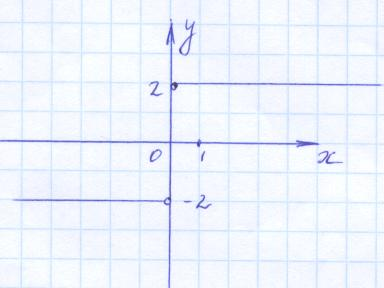 y
2
0 1 x
-2